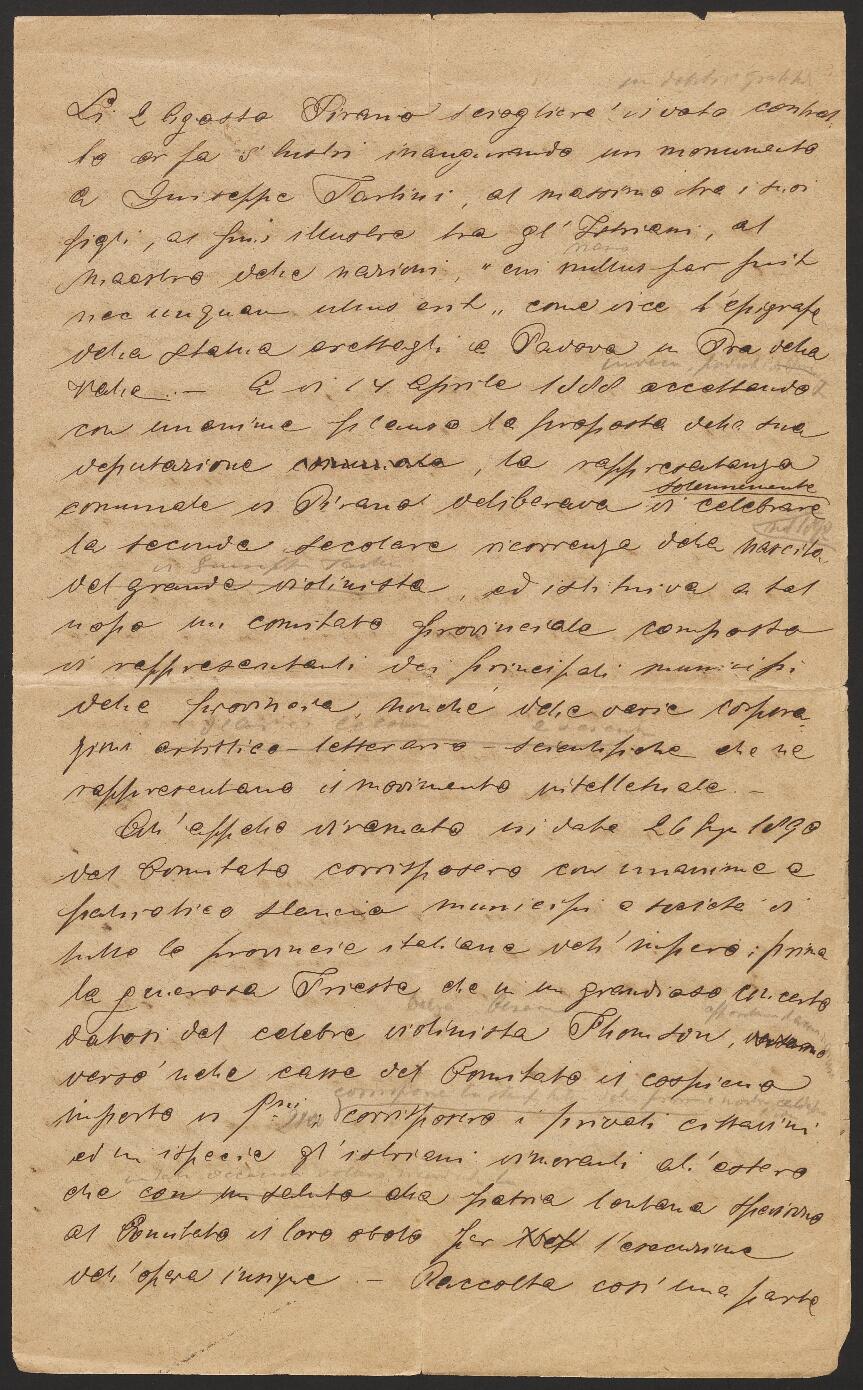 Li 2 Agosto Pirano scioglierà il voto contrat-
to or fa 5 lustri inaugurando un monumento
a Giuseppe Tartini, al massimo tra i suoi
figli, al più illustre tra gl' Istriani, al
maestro delle nazioni, "cui nullus par fuit
nec unquam ullus erit" come dice l'epigrafe
della statua erettagli a Padova in Pra della
Valle. — Il dì 14 Aprile 1888 accettando
con unanime plauso la proposta della sua
deputazione comunale, la rappresentanza
solennemente
comunale di Pirano deliberava di celebrare
la seconda secolare ricorrenza della nascita
di Giuseppe Tartini
del grande violinista, ed istituiva a tal
uopo un comitato provinciale composto
di rappresentanti dei principali municipi
della provincia, nonché delle varie corpora-
zioni artistico-letterario-scientifiche che ne
rappresentano il movimento intellettuale. —
All' appello diramato in data 26 1890
dal Comitato corrisposero con unanime e
patriotico slancio municipi e società di
tutte le provincie italiane dell' impero; prima
la generosa Trieste che in un grandioso concerto
datosi dal celebre violinista Thomson,
versò nelle casse del Comitato il cospicuo
importo di corrisposero i privati cittadini
ed in ispecie gl' istriani dimoranti all' estero
che con un saluto alla patria lontana spedirono
al Comitato il loro obolo per l'esecuzione
dell' opera insigne — Raccolta così una parte